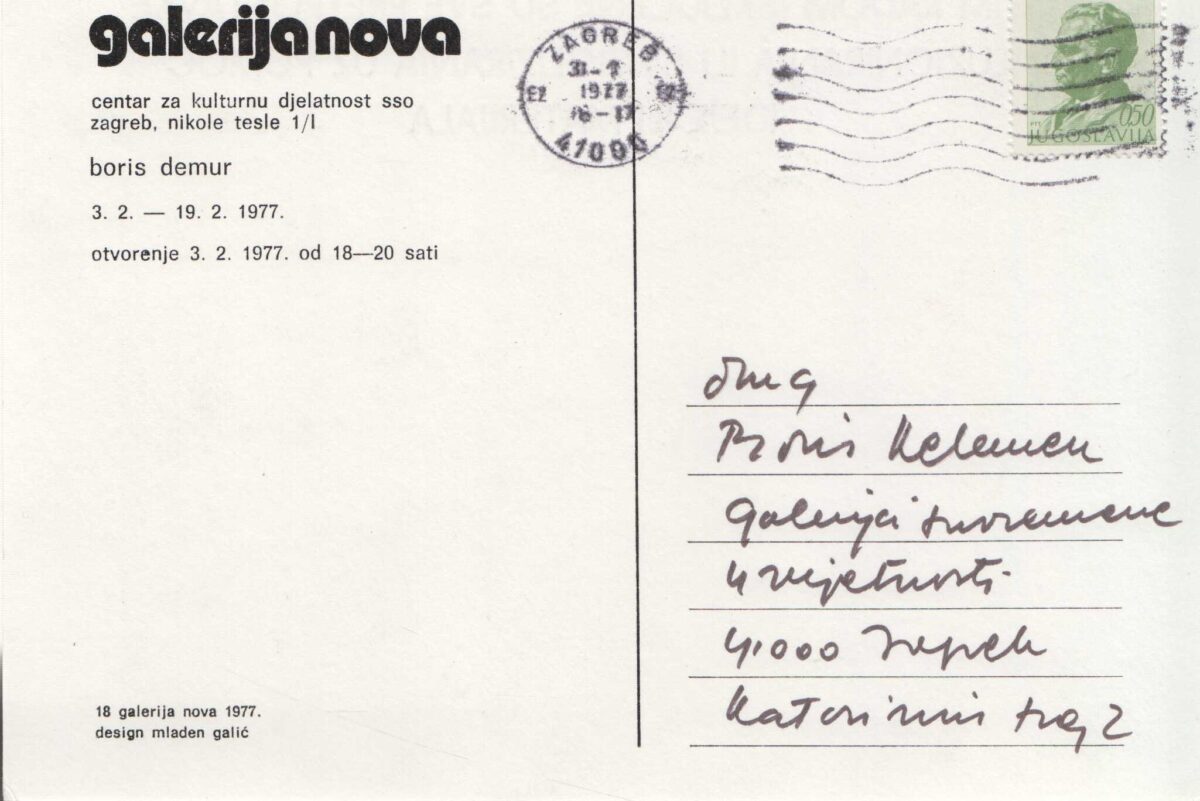 galerija nova
centar za kulturnu djelatnost sso
zagreb, nikole tesle 1/I
boris demur
3. 2. — 19. 2. 1977.
otvorenje 3. 2. 1977. od 18—20 sati
18 galerija nova 1977.
design mladen galić
ZAGREB
1977
16-17
JUGOSLAVIJA
0,50
drug
Boris Kelemen
Galerija suvremene
umjetnosti
41000 Zagreb
Katarinin trg 2